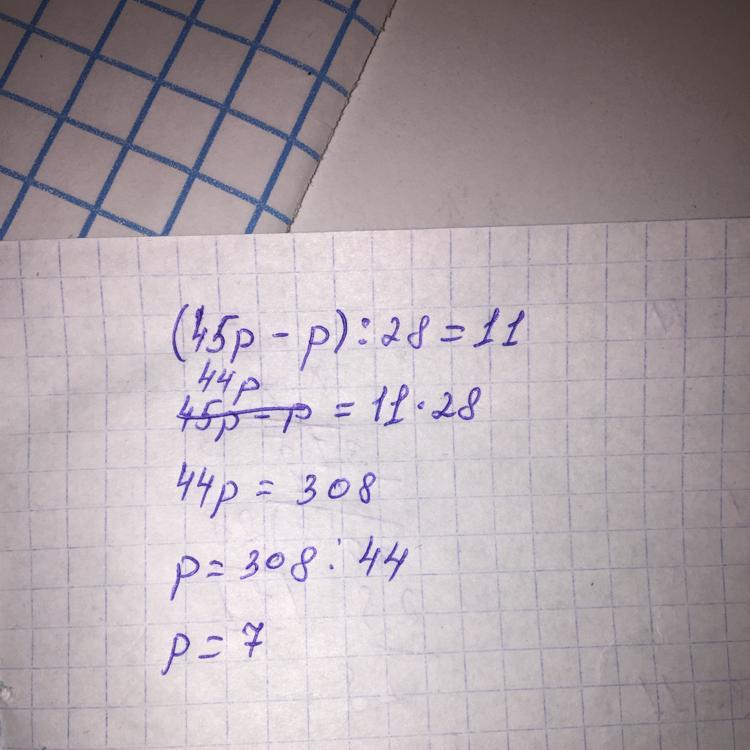 (45p - p) : 28 = 11
44p
45p - p = 11 · 28
44p = 308
p = 308 : 44
p = 7